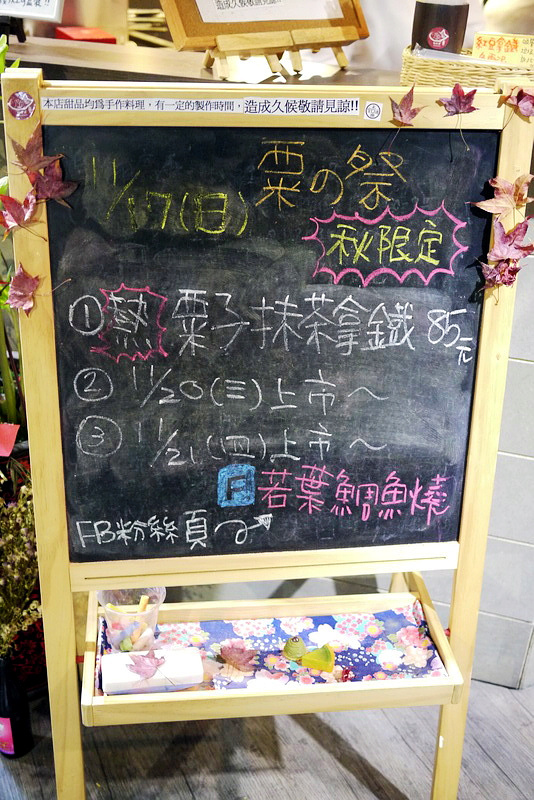 造成久候敬請見諒!!
本店甜品均為手作料理，有一定的製作時間，造成久候敬請見諒!!
11/17(日) 栗の祭
秋限定
① 熱 栗子抹茶拿鐵 85元
② 11/20(三)上市～
③ 11/21(四)上市～
F 若葉鯛魚燒
FB粉絲頁